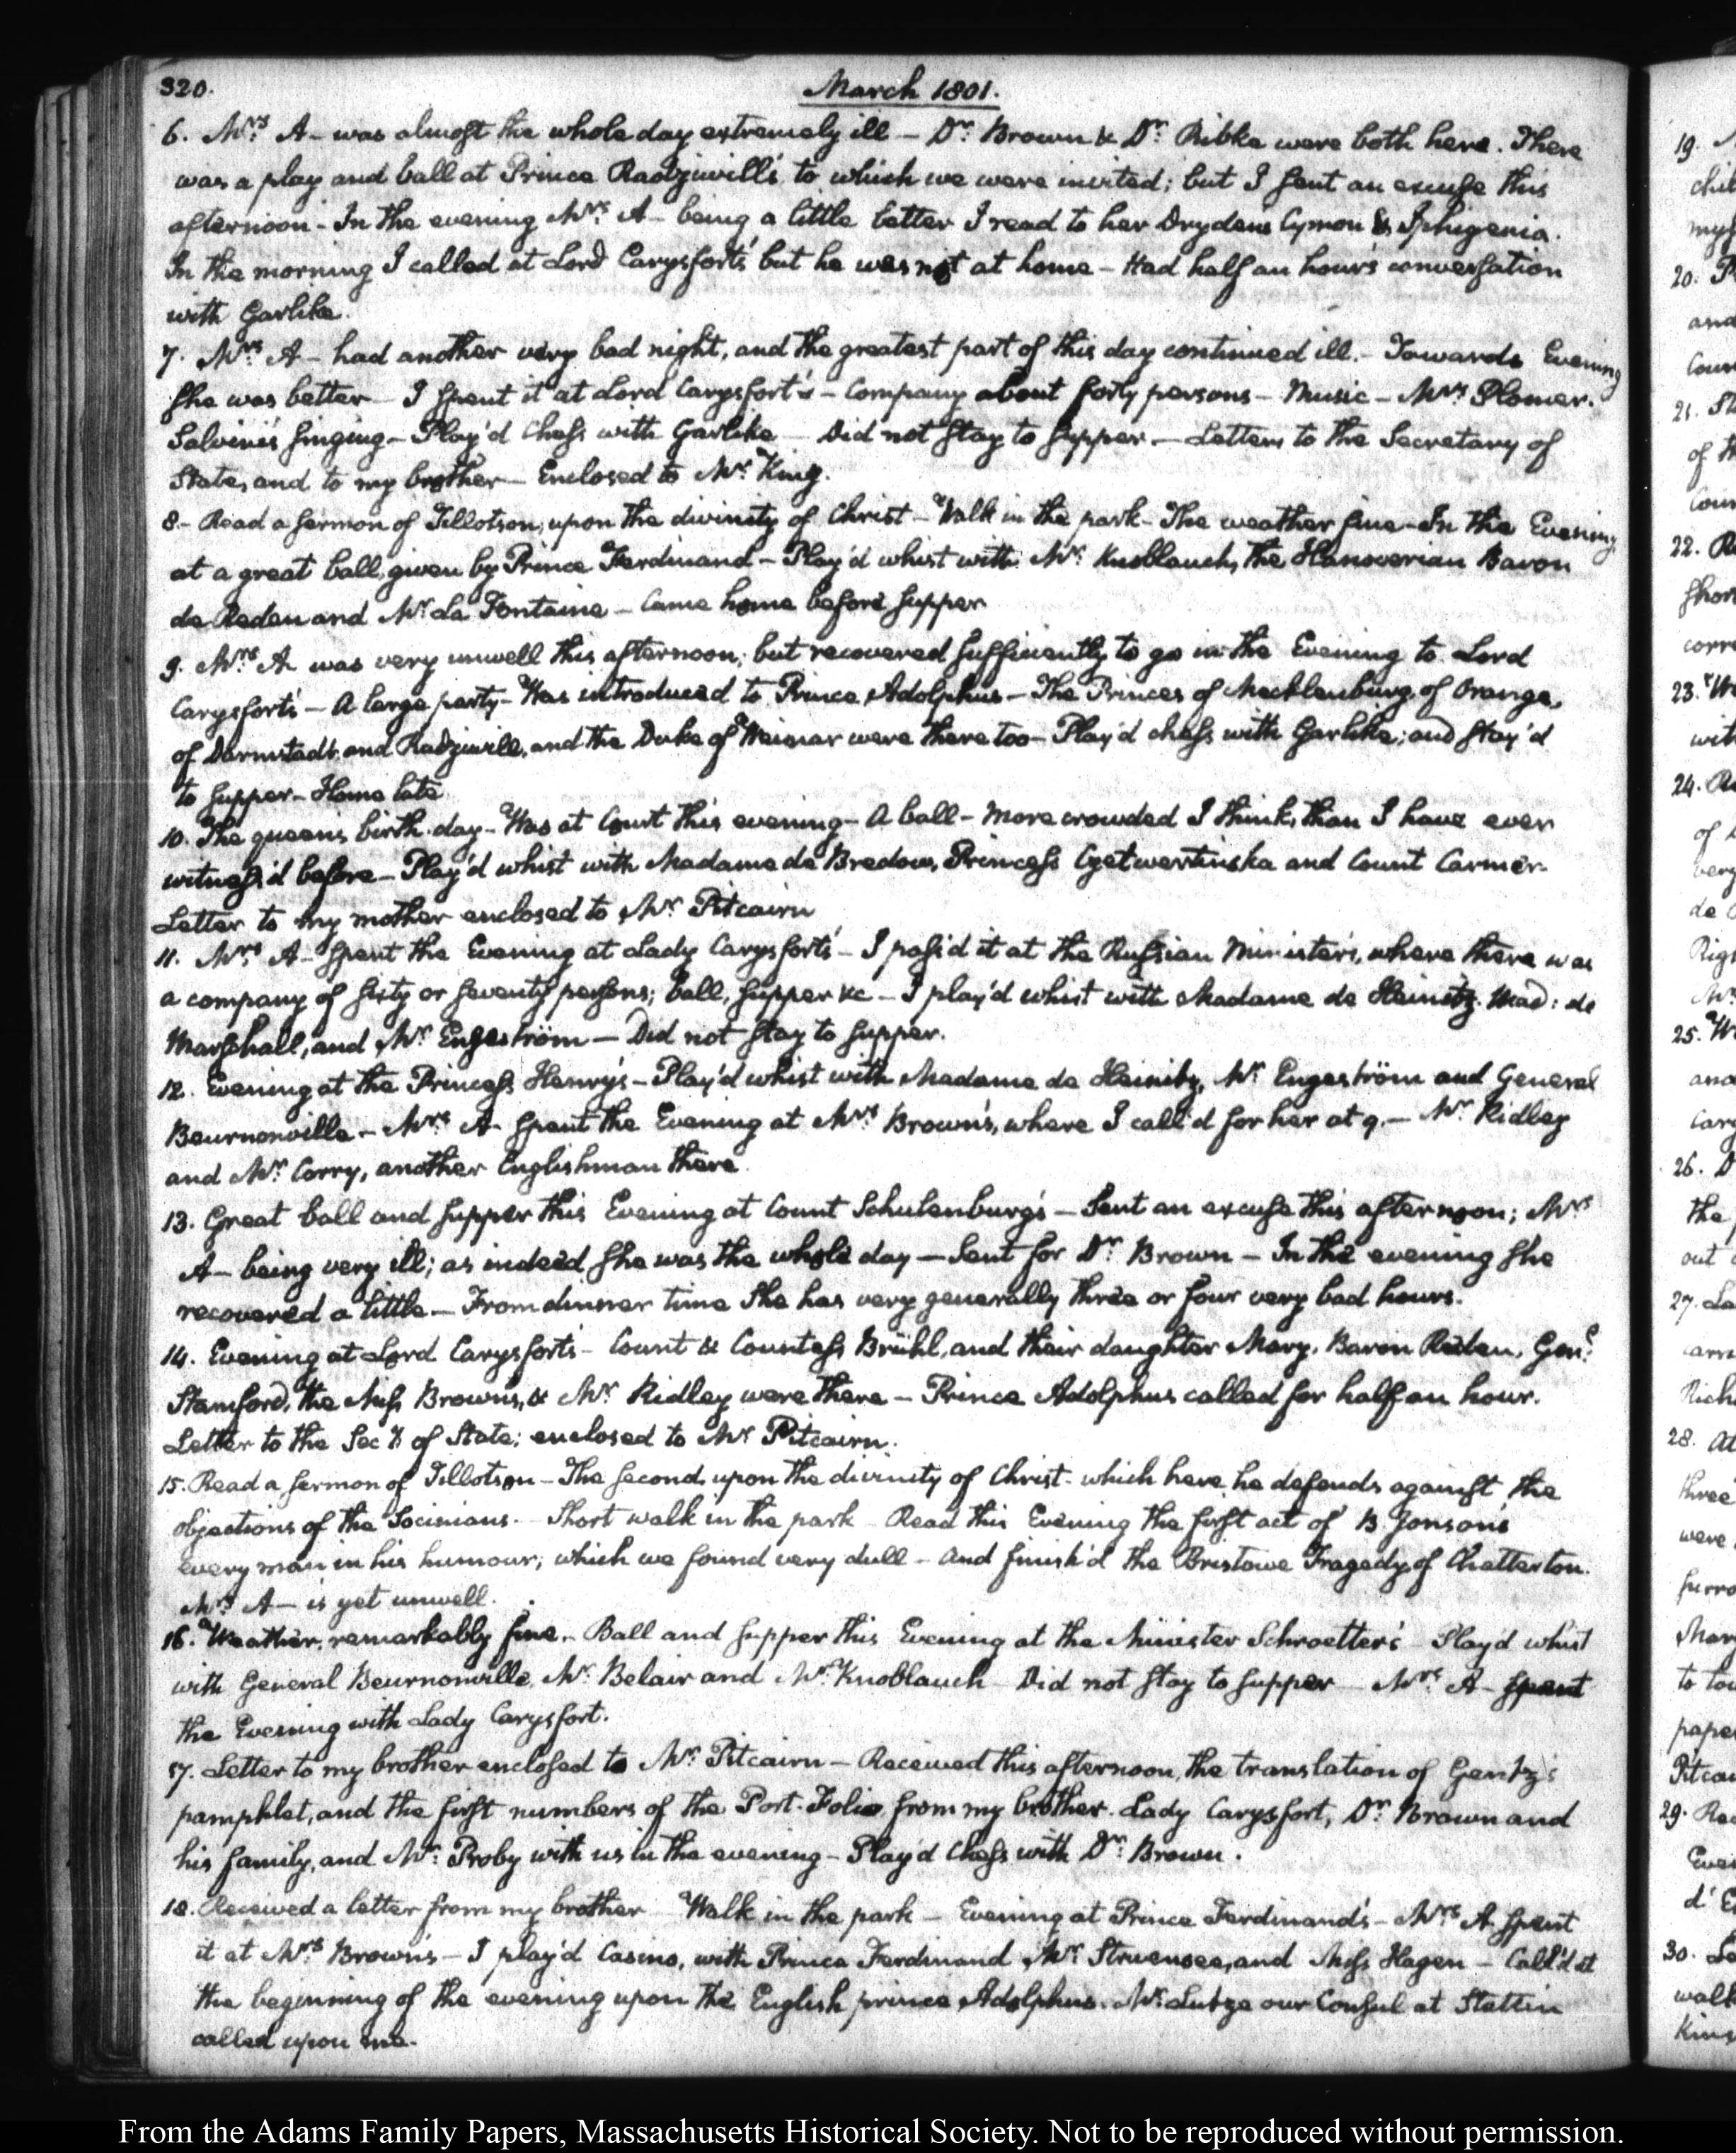 320.
March 1801.
6. Mrs. A— was almost the whole day extremely ill — Dr. Brown & Dr. Ribke were both here. There
was a play and ball at Prince Radziwill's to which we were invited; but I sent an excuse this
afternoon — In the evening Mrs. A— being a little better I read to her Drydens Cymon & Iphigenia.
In the morning I called at Lord Carysfort's but he was not at home — Had half an hour's conversation
with Garlike.
7. Mrs. A— had another very bad night, and the greatest part of this day continued ill. — Towards Evening
she was better — I spent it at Lord Carysfort's — Company about forty persons — Music — Mrs. Plomer.
Salvini's singing — Play'd Chess with Garlike — Did not stay to supper. — Letters to the Secretary of
State, and to my brother — Enclosed to Mr. King.
8. — Read a sermon of Tillotson, upon the divinity of Christ — Walk in the park — The weather fine — In the Evening
at a great ball, given by Prince Ferdinand — Play'd whist with Mr. Knoblauch, the Hanoverian Baron
de Reden and Mr. La Fontaine — Came home before supper
9. Mrs. A— was very unwell this afternoon; but recovered sufficiently to go in the Evening to Lord
Carysfort's — A large party — Was introduced to Prince Adolphus — The Princes of Mecklenburg, of Orange,
of Darmstadt, and Radziwill, and the Duke of Weimar were there too — Play'd chess with Garlike; and stay'd
to supper — Home late
10. The queen's birth-day — Was at Court this evening — A ball — More crowded I think, than I have ever
witness'd before — Play'd whist with Madame de Bredow, Princess Czetwertinska and Count Carmer.
Letter to my mother enclosed to Mr. Pitcairn
11. Mrs. A— spent the Evening at Lady Carysfort's — I pass'd it at the Russian Minister's, where there was
a company of sixty or seventy persons; ball, supper &c — I play'd whist with Madame de Heinitz. Mad: de
Marschall, and Mr. Engeström — Did not stay to supper.
12. Evening at the Princess Henry's — Play'd whist with Madame de Heinitz, Mr. Engeström and General
Beurnonville — Mrs. A— spent the Evening at Mrs. Brown's, where I call'd for her at 9. — Mr. Ridley
and Mr. Corry, another Englishman there.
13. Great ball and supper this Evening at Count Schulenburg's — Sent an excuse this afternoon; Mrs.
A— being very ill; as indeed she was the whole day — Sent for Dr. Brown — In the evening she
recovered a little — From dinner time She has very generally three or four very bad hours.
14. Evening at Lord Carysfort's — Count & Countess Brühl, and their daughter Mary, Baron Reden, Genl.
Stamford, the Miss Browns, & Mr. Ridley were there — Prince Adolphus called for half an hour.
Letter to the Secy. of State; enclosed to Mr. Pitcairn.
15. Read a sermon of Tillotson — The second, upon the divinity of Christ — which here, he defends against the
objections of the Socinians. — Short walk in the park — Read this Evening the first act of B. Jonson's
every man in his humour; which we found very dull — And finish'd the Bristowe Tragedy of Chatterton.
Mrs. A— is yet unwell.
16. Weather remarkably fine. — Ball and supper this Evening at the Minister Schroetter's — Play'd whist
with General Beurnonville, Mr. Belair and Mr. Knoblauch — Did not stay to supper — Mrs. A— spent
the Evening with Lady Carysfort.
17. Letter to my brother enclosed to Mr. Pitcairn — Received this afternoon, the translation of Gentz's
pamphlet, and the first numbers of the Port-Folio, from my brother. Lady Carysfort, Dr. Brown and
his family, and Mr. Proby with us in the evening — Play'd Chess with Dr. Brown.
18. Received a letter from my brother — Walk in the park — Evening at Prince Ferdinand's — Mrs. A— spent
it at Mrs. Brown's — I play'd Casino, with Prince Ferdinand Mr. Struensee, and Miss Hagen — Call'd at
the beginning of the evening upon the English prince Adolphus. Mr. Lutze our Consul at Stettin
called upon me.
From the Adams Family Papers, Massachusetts Historical Society. Not to be reproduced without permission.